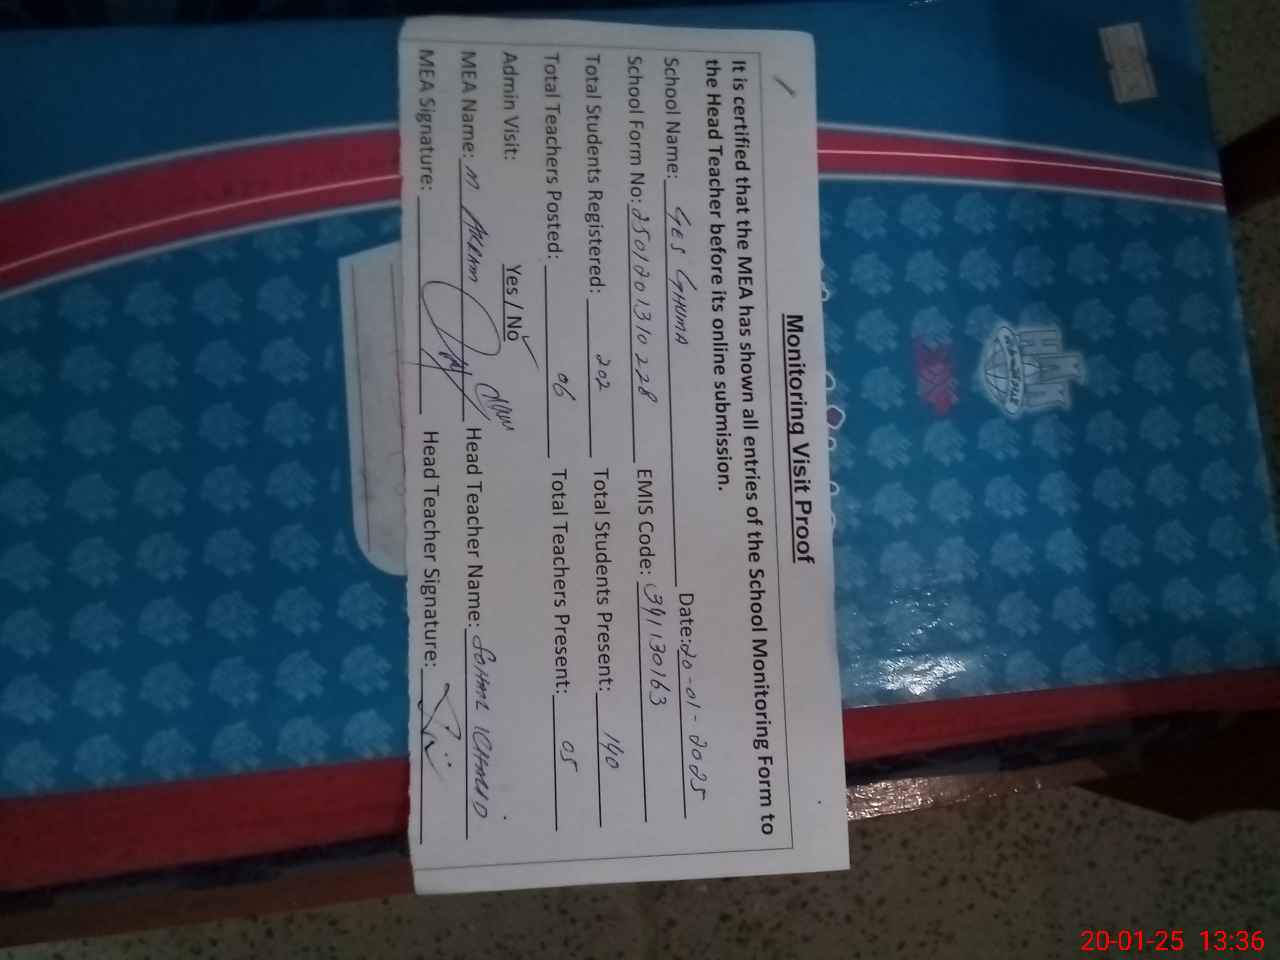 Monitoring Visit Proof
It is certified that the MEA has shown all entries of the School Monitoring Form to
the Head Teacher before its online submission.
School Name: GES GHUMA Date: 20-01-2025
School Form No: 2501201310228 EMIS Code: 39130163
Total Students Registered: 202 Total Students Present: 140
Total Teachers Posted: 06 Total Teachers Present: 05
Admin Visit: Yes / No
MEA Name: M AKRAM Head Teacher Name: SOHAIL KHALID
MEA Signature: Head Teacher Signature:
20-01-25 13:36